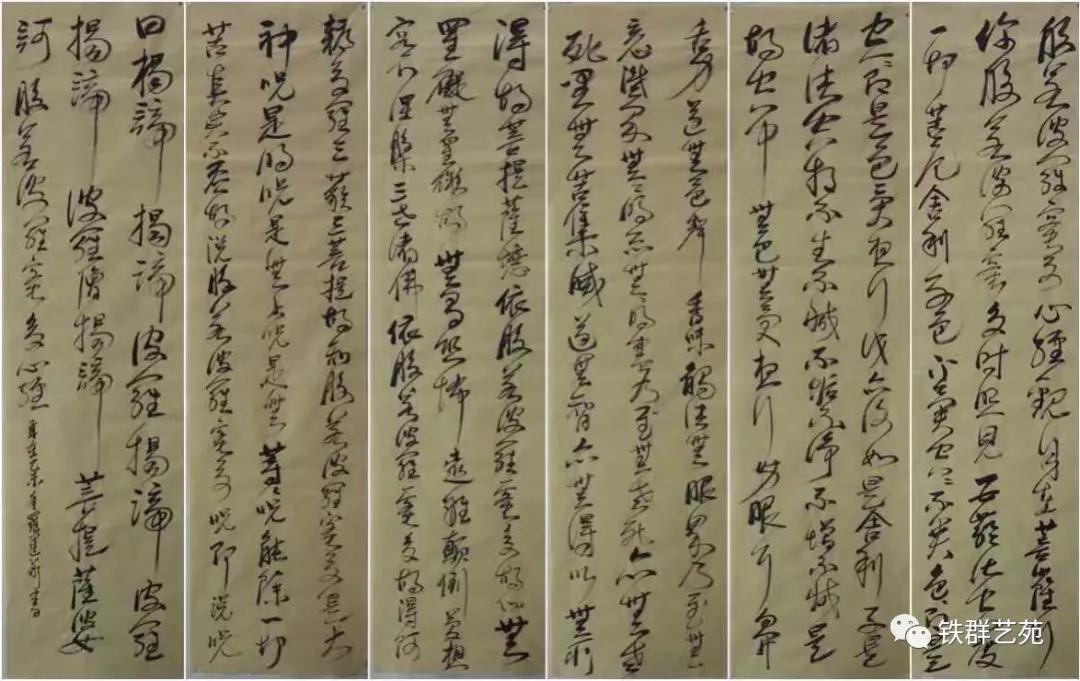 般若波羅蜜多心經觀自在菩薩行
深般若波羅蜜多時照見五蘊皆空度
一切苦厄舍利子色不異空空不異色色即是
空空即是色受想行识亦復如是舍利子是
諸法空相不生不滅不垢不淨不增不減是
故空中無色無受想行眼耳鼻
無色聲香味觸法無眼界乃至無
意識界無無明亦無無明盡乃至無老死亦無老
死盡無苦集滅道無智亦無得以無所
得故菩提薩埵依般若波羅蜜多故心無
罣礙無罣礙故無有恐怖遠離顛倒夢想
究竟涅槃三世諸佛依般若波羅蜜多故得阿
耨多羅三藐三菩提故知般若波羅蜜多是大
神呪是明呪是無上呪是無等等呪能除一切
苦真實不虛故說般若波羅蜜多呪即說呪
曰揭諦揭諦波羅揭諦波羅
揭諦波羅僧揭諦菩提薩婆
訶般若波羅蜜多心經
铁群艺苑